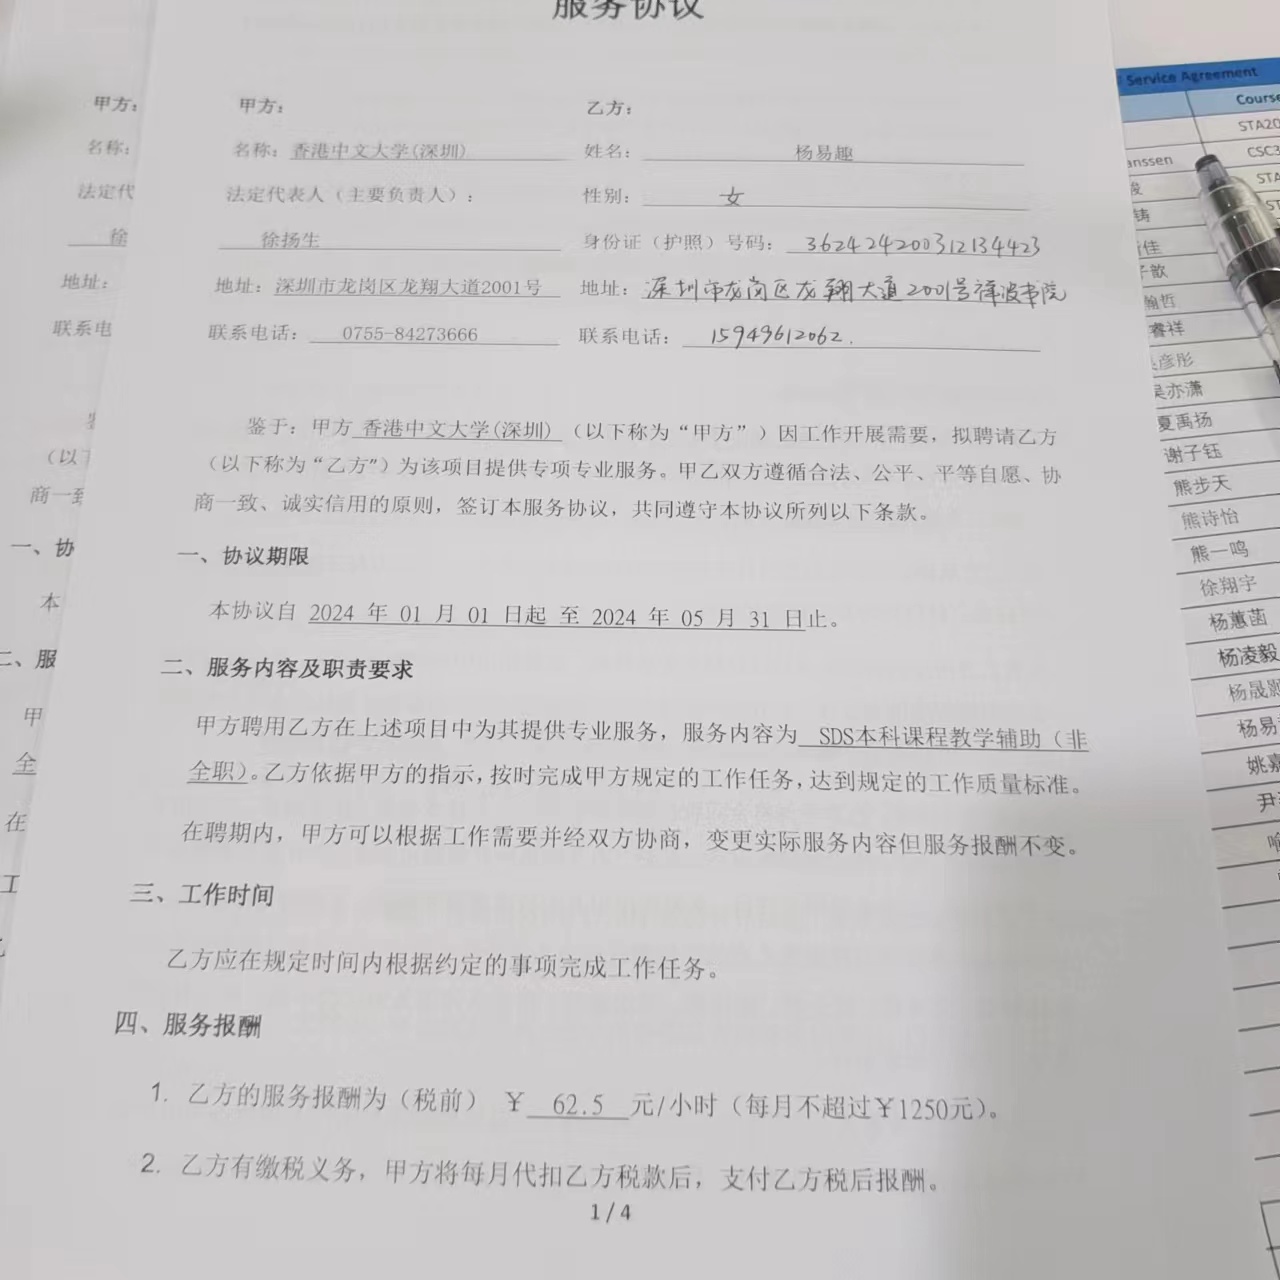 服务协议
甲方：
名称：香港中文大学(深圳)
法定代表人（主要负责人）：
徐扬生
地址：深圳市龙岗区龙翔大道2001号
联系电话：0755-84273666
乙方：
姓名：杨易趣
性别：女
身份证（护照）号码：362424200312134423
地址：深圳市龙岗区龙翔大道2001号祥波书院
联系电话：15949612062.
鉴于：甲方 香港中文大学(深圳) （以下称为“甲方”）因工作开展需要，拟聘请乙方
（以下称为“乙方”）为该项目提供专项专业服务。甲乙双方遵循合法、公平、平等自愿、协
商一致、诚实信用的原则，签订本服务协议，共同遵守本协议所列以下条款。
一、协议期限
本协议自 2024 年 01 月 01 日起 至 2024 年 05 月 31 日止。
二、服务内容及职责要求
甲方聘用乙方在上述项目中为其提供专业服务，服务内容为 SDS本科课程教学辅助（非
全职）。乙方依据甲方的指示，按时完成甲方规定的工作任务，达到规定的工作质量标准。
在聘期内，甲方可以根据工作需要并经双方协商，变更实际服务内容但服务报酬不变。
三、工作时间
乙方应在规定时间内根据约定的事项完成工作任务。
四、服务报酬
1. 乙方的服务报酬为（税前）￥ 62.5 元/小时（每月不超过￥1250元）。
2. 乙方有缴税义务，甲方将每月代扣乙方税款后，支付乙方税后报酬。
1 / 4
甲方：
名称：
法定代
徐
地址：
联系电
（以下
商一致
一、协
本
二、服
甲
全
在
工
Service Agreement
Course
STA20
anssen
CSC3
STA
ST
铸
佳
歆
瀚哲
睿祥
彦彤
吴亦潇
夏禹扬
谢子钰
熊步天
熊诗怡
熊一鸣
徐翔宇
杨蕙菡
杨凌毅
杨晟
杨易
姚嘉
尹